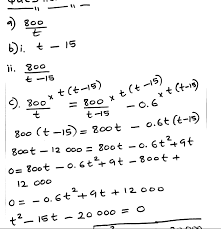 a) 800/t
b) i. t - 15
ii. 800/t - 15
c). 800/t × t(t-15) = 800/t-15 × t(t-15) - 0.6 × t(t-15)
800(t-15) = 800t - 0.6t(t-15)
800t - 12 000 = 800t - 0.6t² + 9t
0 = 800t - 0.6t² + 9t - 800t +
12 000
0 = - 0.6t² + 9t + 12 000
t² - 15t - 20 000 = 0